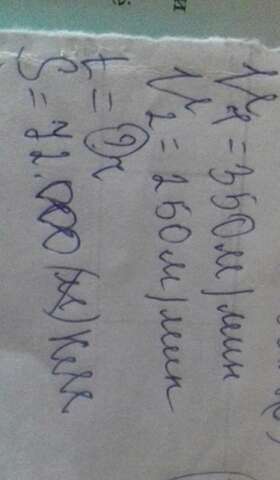 V₁ = 350 м/мин
V₂ = 250 м/мин
t = ? ч
S = 72.000 (м) км